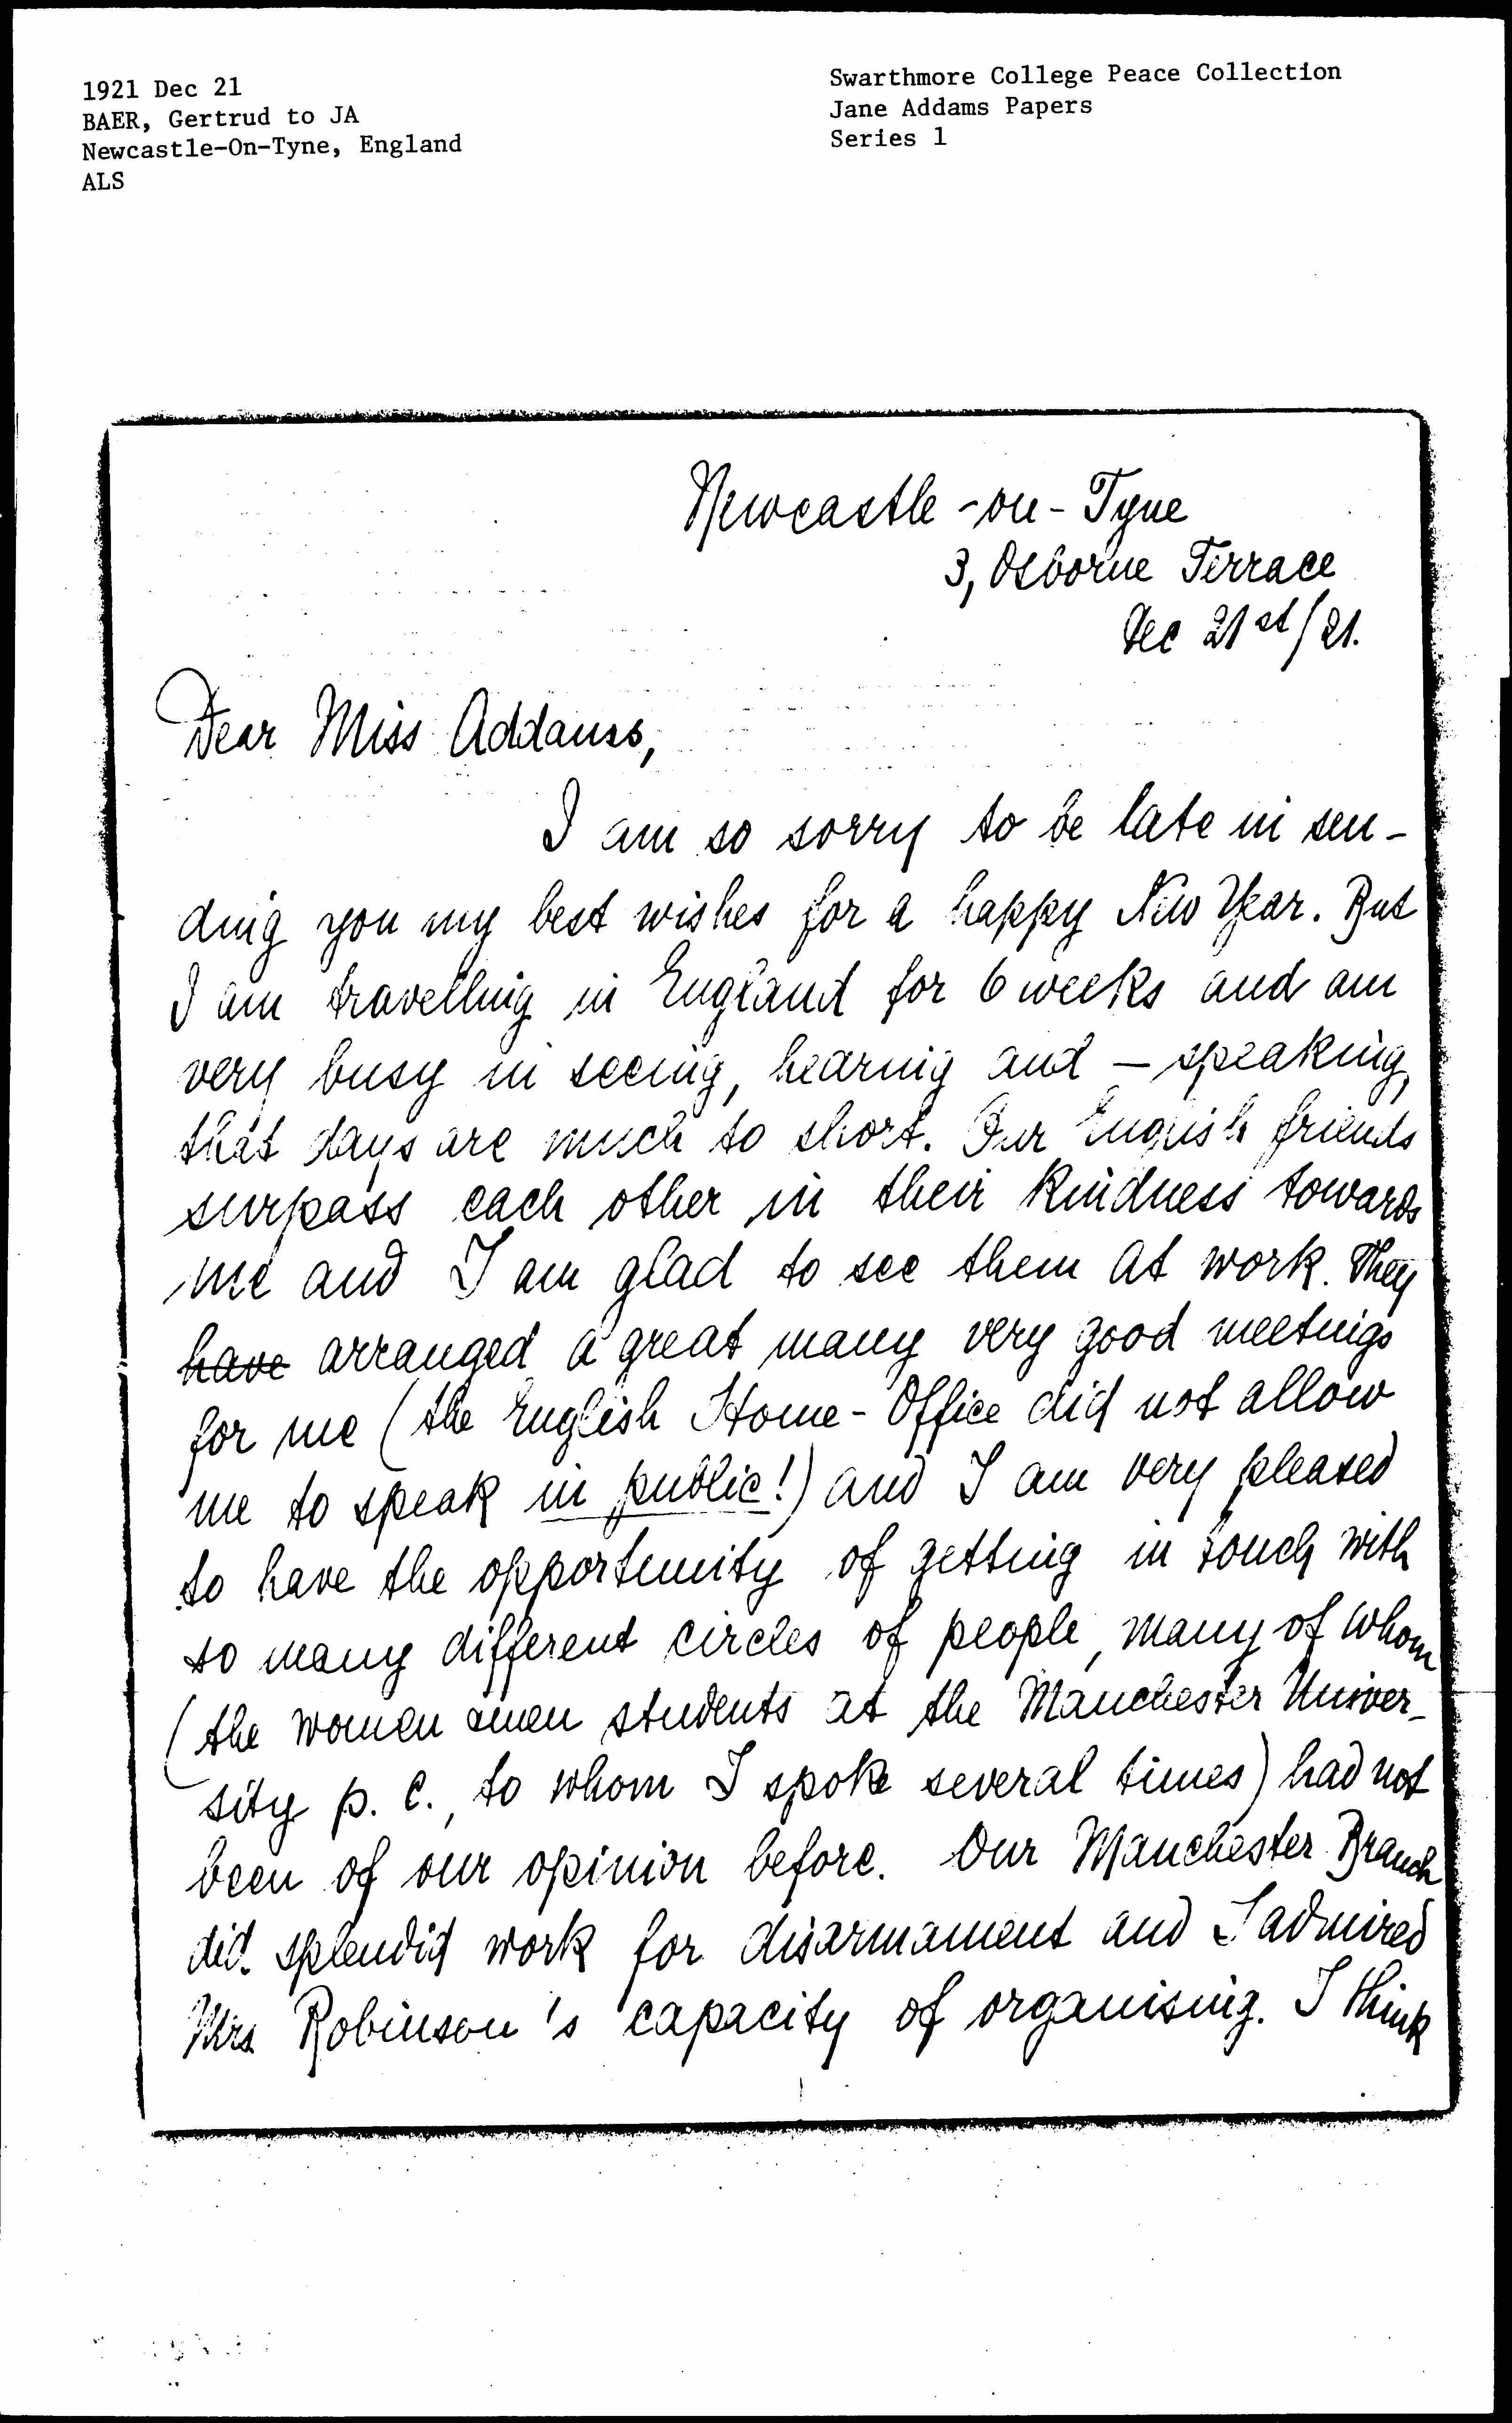 1921 Dec 21
BAER, Gertrud to JA
Newcastle-On-Tyne, England
ALS
Swarthmore College Peace Collection
Jane Addams Papers
Series 1
Newcastle-on-Tyne
3, Osborne Terrace
Dec 21st/21.
Dear Miss Addams,
I am so sorry to be late in sen-
ding you my best wishes for a happy New Year. But
I am travelling in England for 6 weeks and am
very busy in seeing, hearing and – speaking,
that days are much to short. Our English friends
surpass each other in their kindness towards
me and I am glad to see them at work. They
have arranged a great many very good meetings
for me (the English Home-Office did not allow
me to speak in public!) and I am very pleased
to have the opportunity of getting in touch with
so many different circles of people, many of whom
(the women students at the Manchester Univer-
sity p. e., to whom I spoke several times) had not
been of our opinion before. Our Manchester Branch
did splendid work for disarmament and I admired
Mrs Robinson's capacity of organising. I think